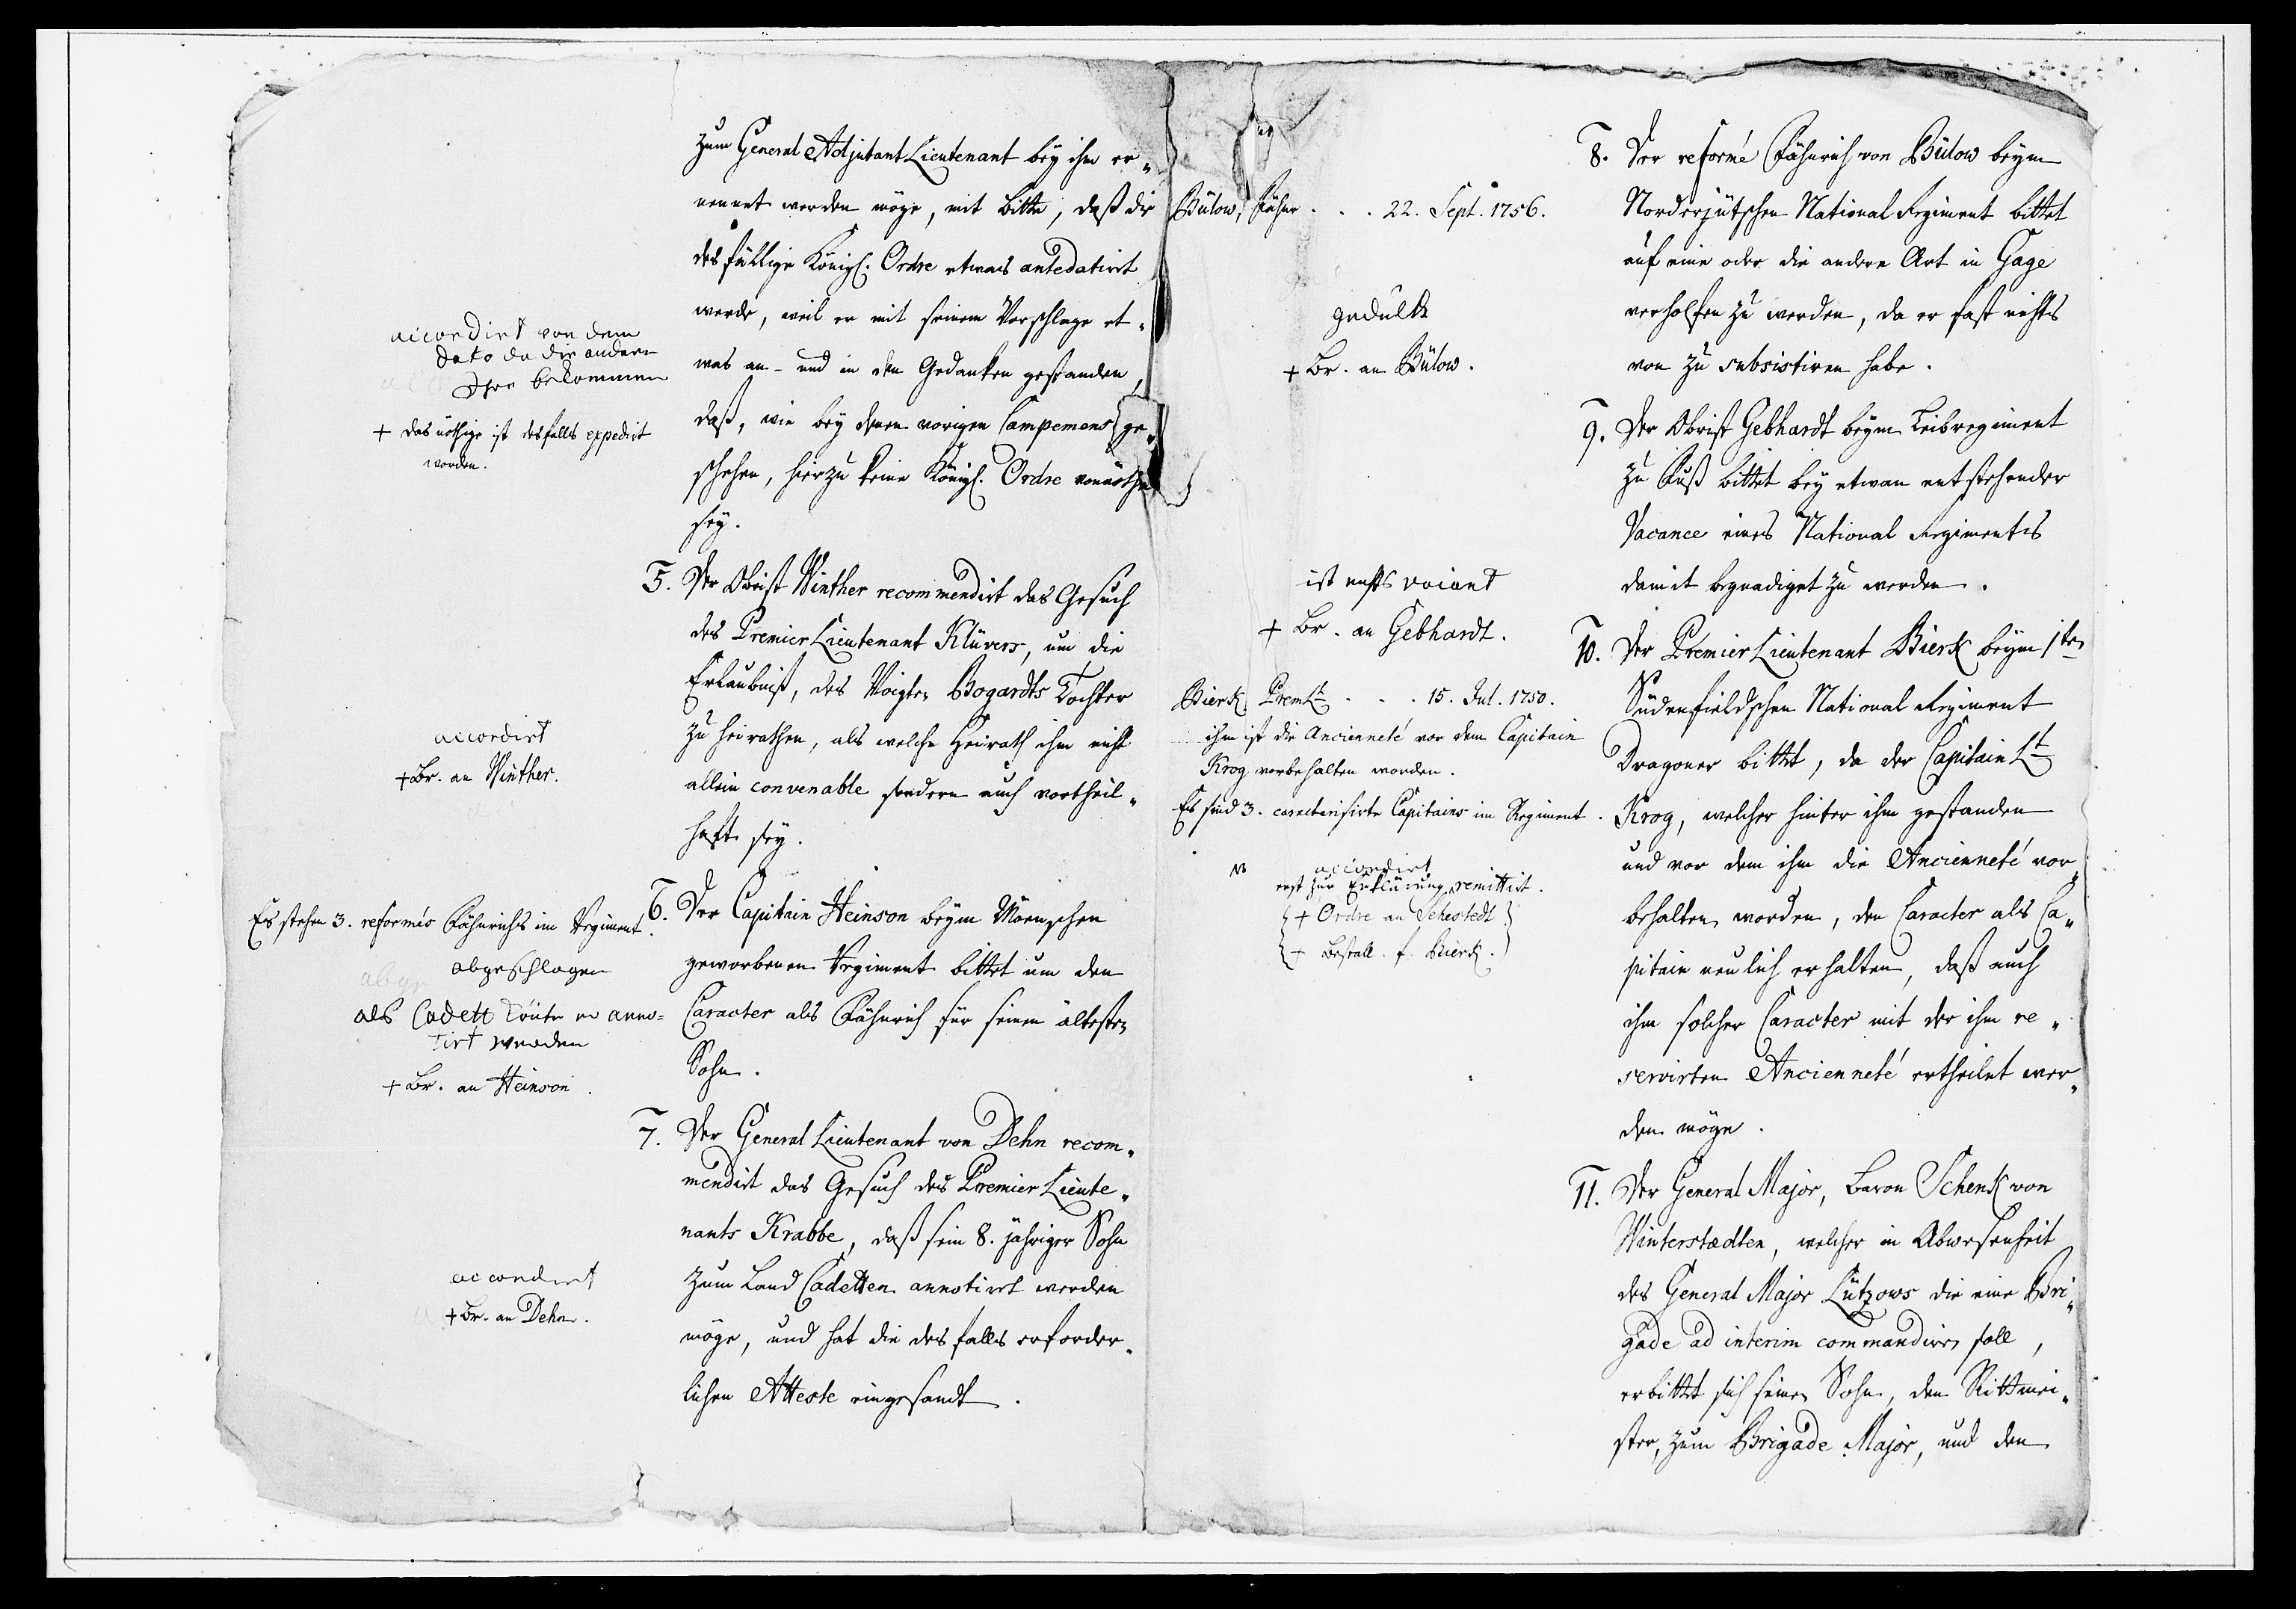 zum General Adjutant Lieutenant bey ihm er„
nennet werden möge, mit bitte, daß die
desfällige Königl. Ordre etwas antedatirt
werde, weil er mit seinem Vorschlage et„
was an- und in den Gedanken gestanden,
daß, wie bey denen vorigen Campemens ge„
schehen, hierzu keine Königl. Ordre vonnöthen
sey.
accordirt von dem
dato da die andern
Ihre bekommen
+ das nöthige ist desfalls expedirt
worden.
5. Der Obrist Winther recommendirt das Gesuch
des Premier Lieutenant Klüvers, um die
Erlaubniß, des Voigten Bogardts Tochter
zu heirathen, als welche Heirath ihm nicht
allein convenable sondern auch vortheil„
haft sey.
accordirt
+ Br. an Winther.
6. Der Capitain Heinson beym Möenschen
geworbenen Regiment bittet um den
Caracter als Fähnrich für seinen ältesten
Sohn.
Es stehen 3. reformés Fähnrichs im Regiment.
abgeschlagen
als Cadett könte er anno=
tirt werden
+ Br. an Heinson.
7. Der General Lieutenant von Dehn recom„
mendirt das Gesuch des Premier Lieute„
nants Krabbe, daß sein 8. jähriger Sohn
zum Land Cadetten annotirt werden
möge, und hat die desfalls erforder„
lichen Atteste eingesandt.
accordirt
+ Br. an Dehn.
8. Der reformé Fähnrich von Bülow beym
Norderjütschen National Regiment bittet
auf eine oder die andere Art in Gage
verholfen zu werden, da er fast nichts
von zu subsistiren habe.
Bülow, Fähnr. . . 22. Sept. 1756.
gedult
+ Br. an Bülow.
9. Der Obrist Gebhardt beym Leibregiment
zu Fuß bittet bey etwan entstehender
Vacance eines National Regiments
damit begnadiget zu werden.
ist nichts vacant
+ Br. an Gebhardt.
10. Der Premier Lieutenant Bierk beym 1ten
Südenfieldschen National Regiment
Dragoner bittet, da der Capitain Lt
Krog, welcher hinter ihm gestanden
und vor dem ihm die Ancienneté vor„
behalten worden, den Caracter als Ca„
pitain neulich erhalten, daß auch
ihm solcher Caracter mit der ihm re„
servirten Ancienneté ertheilet wer„
den möge.
Bierk, PremLt . . . 15. Jul. 1750.
ihm ist die Ancienneté vor dem Capitain
Krog vorbehalten worden.
Es sind 3. caracterisirte Capitains im Regiment.
accordirt
erst zur Erklärung remittirt.
+ Ordre an Sehestedt
+ Bestall. f. Bierk.
11. Der General Major, Baron Schenk von
Winterstædten, welcher in Abwesenheit
des General Major Lützows die eine Bri„
gade ad interim commandiren soll,
erbittet sich seinen Sohn, den Rittmei„
ster, zum Brigade Major, und den